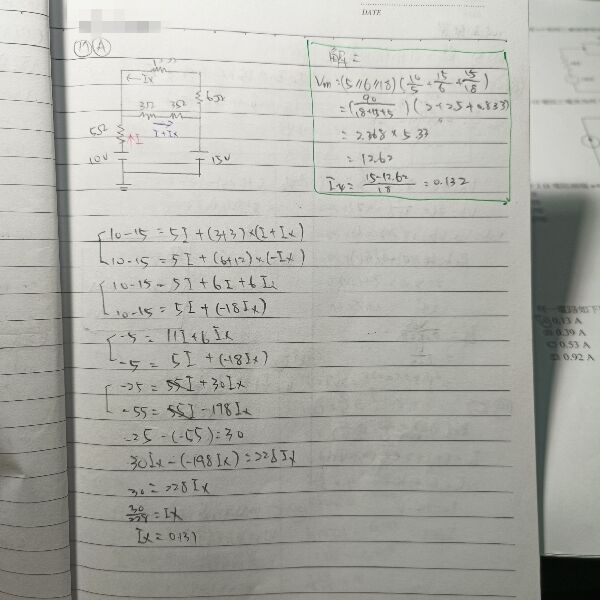 DATE
17 A
Ix
6Ω
3Ω 3Ω
I+Ix
5Ω
I
10V
15V
解:
Vm=(5//6//18)(10/5+15/6+15/18)
=(90/18+15+5)(2+2.5+0.833)
=2.368×5.33
=12.62
Ix=15-12.62/18=0.132
10-15=5I+(3+3)×(I+Ix)
10-15=5I+(6+12)×(-Ix)
10-15=5I+6I+6Ix
10-15=5I+(-18Ix)
-5=11I+6Ix
-5=5I+(-18Ix)
-25=55I+30Ix
-55=55I-198Ix
-25-(-55)=30
30Ix-(-198Ix)=228Ix
30=228Ix
30/228=Ix
Ix=0.131
0.13 A
0.39 A
0.53 A
0.92 A